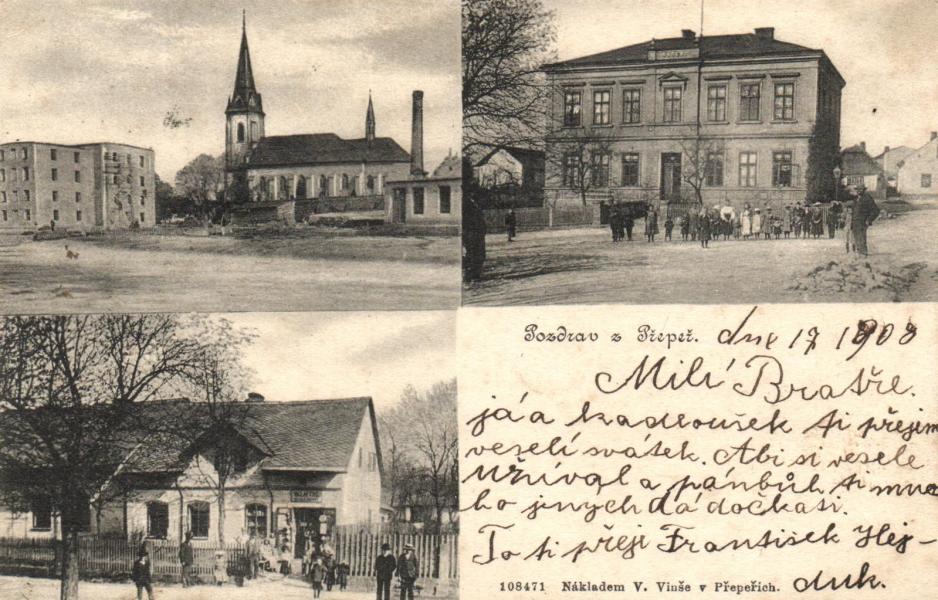 Pozdrav z Přepeř. dne 17 1908
Milí Bratře.
já a kadloušek ti přejim
veselí svátek. Abi si vesele
Užíval a pánbůh ti mno
ho jinych dá dočkati.
To ti přeji František Hej-
duk.
108471 Nákladem V. Vinše v Přepeřích.